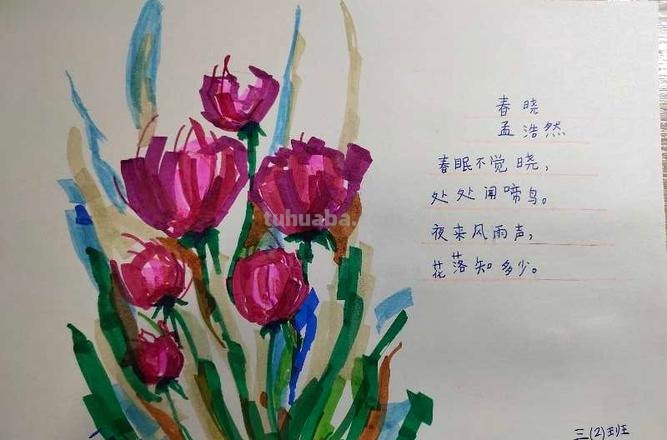 春晓
孟浩然
春眠不觉晓，
处处闻啼鸟。
夜来风雨声，
花落知多少。
tuhuaba.com
三(2)班